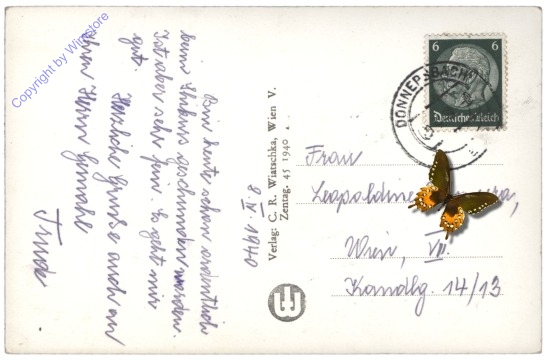 8. II. 1940
Bin heute schon ordentlich
beim
geschunden worden.
Ist aber sehr fein. Es geht mir
gut.
Herzliche Grüße auch an
Ihren Herrn Gemahl
Trude
Verlag: C. R. Wiatschka, Wien V.
Zentag. 45 1940
6 6
Deutsches Reich
DONNERSBACH
Frau
Leopoldine
Wien, VII.
Kandlg. 14/13
Copyright by Winstore